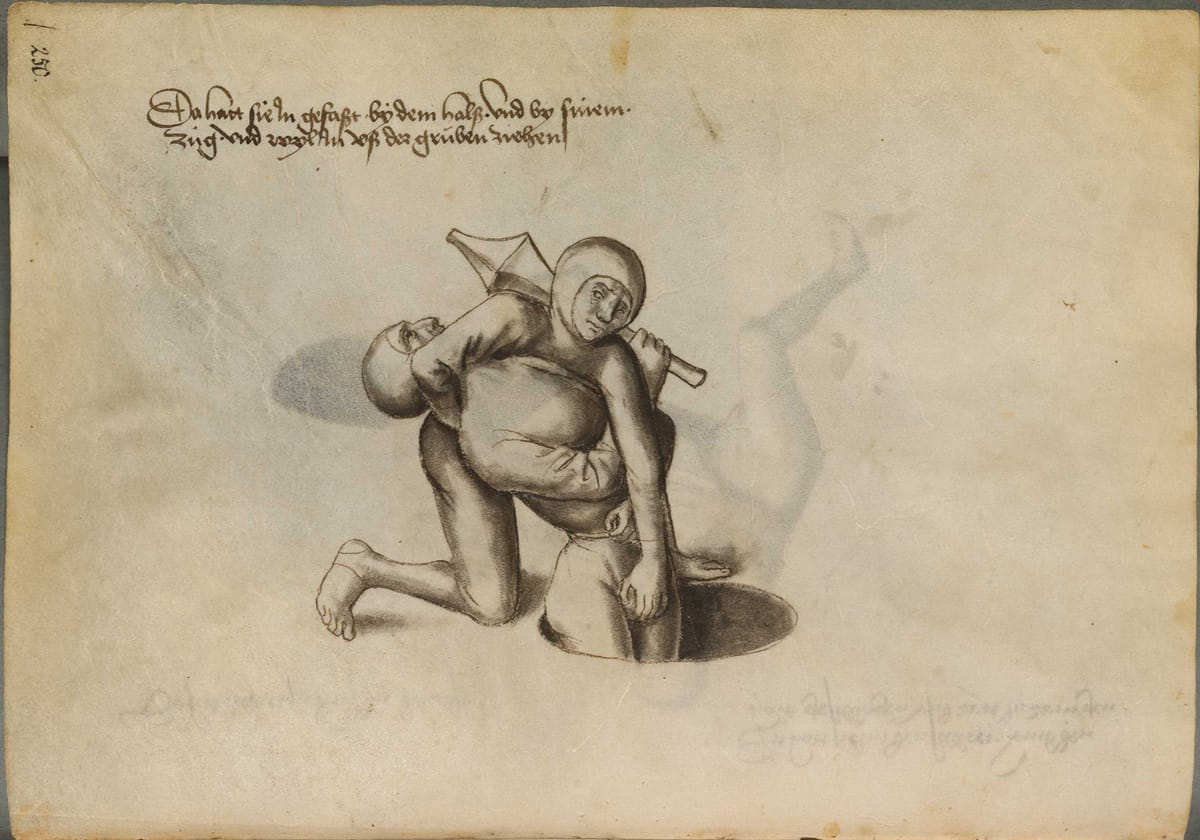 250.
Da hatt sie In gefaßt by dem halß vnd by sinem
züg vnd wyl In vß der grůben ziehen